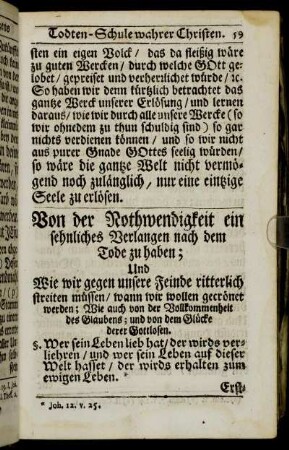 Todten-Schule wahrer Christen. 59
sten ein eigen Volck / das da fleißig wäre
zu guten Wercken / durch welche GOtt ge-
lobet / gepreiset und verherrlichet würde / ꝛc.
So haben wir denn kürtzlich betrachtet das
gantze Werck unserer Erlösung / und lernen
daraus / wie wir durch alle unsere Wercke (so
wir ohnedem zu thun schuldig sind) so gar
nichts verdienen können / und so wir nicht
aus purer Gnade GOttes seelig würden /
so wäre die gantze Welt nicht vermö-
gend noch zulänglich / nur eine eintzige
Seele zu erlösen.
Von der Nothwendigkeit ein
sehnliches Verlangen nach dem
Tode zu haben;
Und
Wie wir gegen unsere Feinde ritterlich
streiten müssen / wann wir wollen gecrönet
werden; Wie auch von der Vollkommenheit
des Glaubens; und von dem Glücke
derer Gottlosen.
§. Wer sein Leben lieb hat / der wirds ver-
liehren / und wer sein Leben auf dieser
Welt hasset / der wirds erhalten zum
ewigen Leben. *
Erst-
* Joh. 12. v. 25.